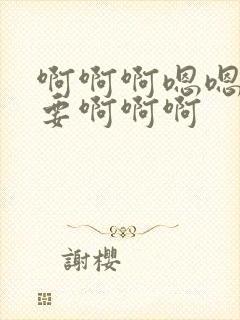 啊啊啊嗯嗯
要啊啊啊
謝櫻